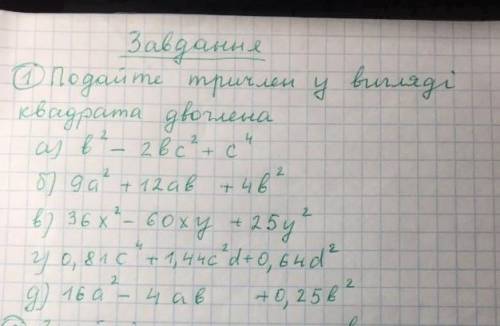 Завдання
1 Подайте тричлен у вигляді
квадрата двочлена
а) b² - 2bc² + c⁴
б) 9a² + 12ab + 4b²
в) 36x² - 60xy + 25y²
г) 0,81c⁴ + 1,44c²d + 0,64d²
д) 16a² - 4ab + 0,25b²